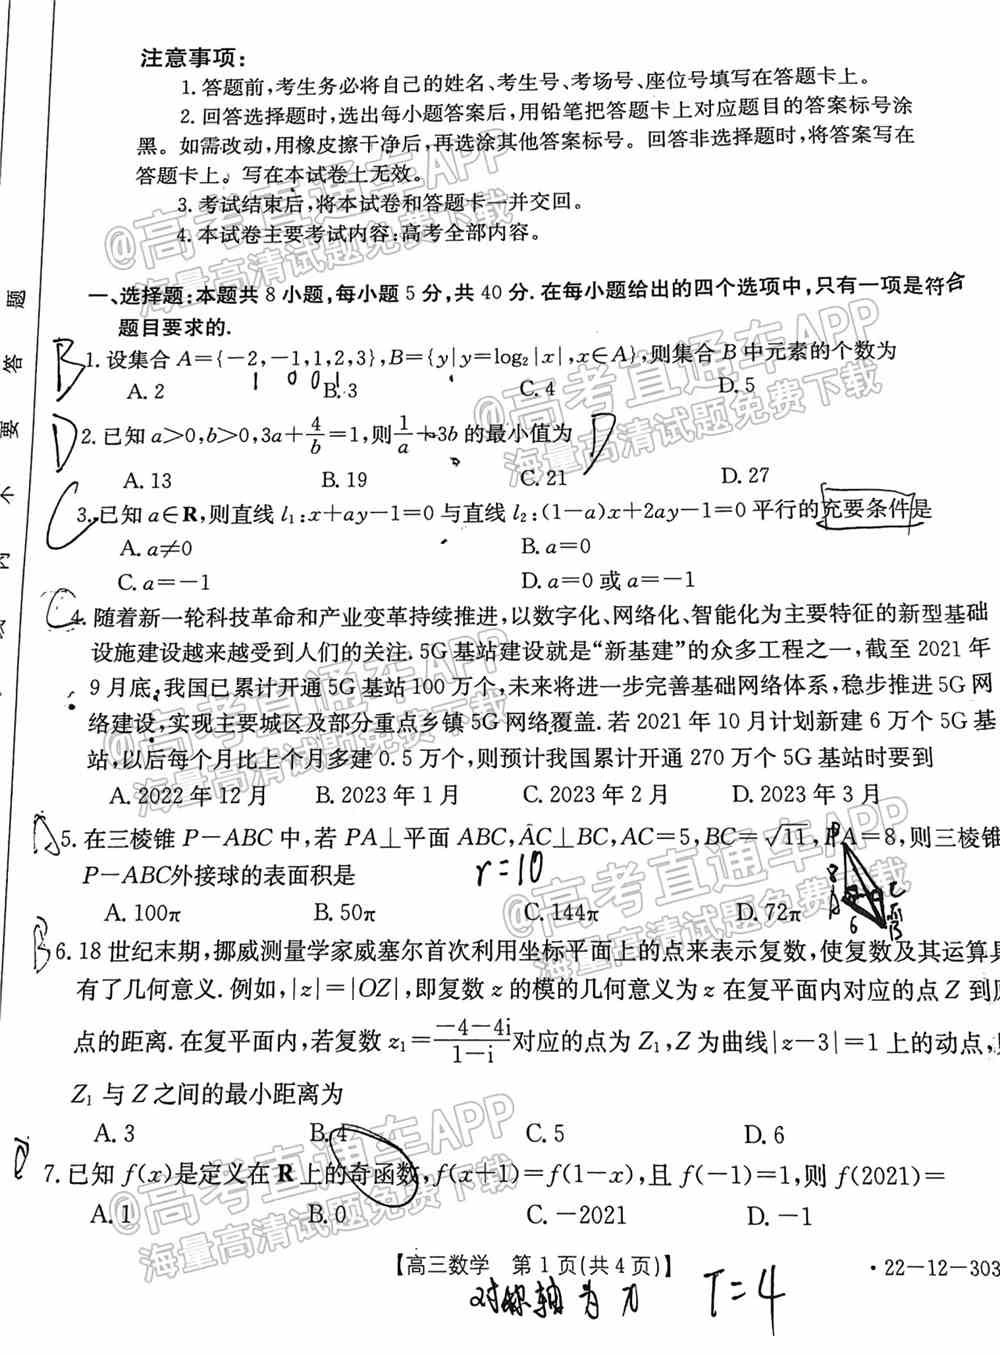 注意事项:
1.答题前,考生务必将自己的姓名、考生号、考场号、座位号填写在答题卡上。
2.回答选择题时,选出每小题答案后,用铅笔把答题卡上对应题目的答案标号涂
黑。如需改动,用橡皮擦干净后,再选涂其他答案标号。回答非选择题时,将答案写在
答题卡上。写在本试卷上无效。
3.考试结束后,将本试卷和答题卡一并交回。
4.本试卷主要考试内容:高考全部内容。
@高考直通车APP
海量高清试题免费下载
一、选择题:本题共8小题,每小题5分,共40分.在每小题给出的四个选项中,只有一项是符合
题目要求的.
B 1.设集合A={-2,-1,1,2,3},B={y|y=log₂|x|,x∈A},则集合B中元素的个数为
1 0 0 1
A.2 B.3 C.4 D.5
@高考直通车APP
海量高清试题免费下载
D 2.已知a>0,b>0,3a+4/b=1,则1/a+3b的最小值为 D
A.13 B.19 C.21 D.27
C 3.已知a∈R,则直线l₁:x+ay-1=0与直线l₂:(1-a)x+2ay-1=0平行的充要条件是
A.a≠0 B.a=0
C.a=-1 D.a=0或a=-1
C 4.随着新一轮科技革命和产业变革持续推进,以数字化、网络化、智能化为主要特征的新型基础
设施建设越来越受到人们的关注.5G基站建设就是“新基建”的众多工程之一,截至2021年
9月底,我国已累计开通5G基站100万个,未来将进一步完善基础网络体系,稳步推进5G网
络建设,实现主要城区及部分重点乡镇5G网络覆盖.若2021年10月计划新建6万个5G基
站,以后每个月比上个月多建0.5万个,则预计我国累计开通270万个5G基站时要到
A.2022年12月 B.2023年1月 C.2023年2月 D.2023年3月
@高考直通车APP
海量高清试题免费下载
A 5.在三棱锥P-ABC中,若PA⊥平面ABC,AC⊥BC,AC=5,BC=√11,PA=8,则三棱锥
P-ABC外接球的表面积是 r=10
A.100π B.50π C.144π D.72π
8 A 6 B
@高考直通车APP
海量高清试题免费下载
B 6.18世纪末期,挪威测量学家威塞尔首次利用坐标平面上的点来表示复数,使复数及其运算具
有了几何意义.例如,|z|=|OZ|,即复数z的模的几何意义为z在复平面内对应的点Z到原
点的距离.在复平面内,若复数z₁=(-4-4i)/(1-i)对应的点为Z₁,Z为曲线|z-3|=1上的动点,则
Z₁与Z之间的最小距离为
A.3 B.4 C.5 D.6
@高考直通车APP
海量高清试题免费下载
7.已知f(x)是定义在R上的奇函数,f(x+1)=f(1-x),且f(-1)=1,则f(2021)=
A.1 B.0 C.-2021 D.-1
【高三数学 第1页(共4页)】
·22-12-303
对称轴为 T=4
题
答
要
不
内